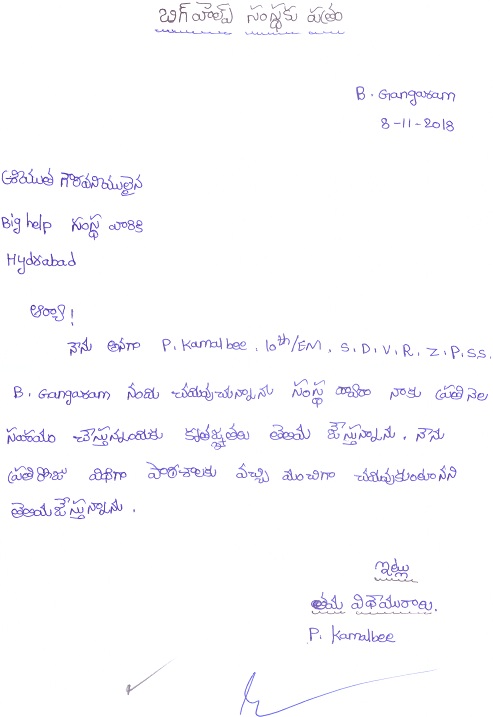 బిగ్ హెల్ప్ సంస్థకు పత్రం
B. Gangaram
8-11-2018
శ్రీయుత గౌరవనియులైన
Big help సంస్థ వారికి
Hydrabad
ఆర్యా!
నేను అనగా P. Kamalbee. 10th/EM, S.D.V.R.Z.P.S.S.
B. Gangaram నందు చదువుచున్నాను సంస్థ ద్వారా నాకు ప్రతినెల
సహయం చేస్తున్నందుకు కృతజ్ఞతలు తెలియ జేస్తున్నాను. నేను
ప్రతిరోజు విధిగా పాఠశాలకు వచ్చి మంచిగా చదువుకుంటానని
తెలియజేస్తున్నాను.
ఇట్లు
తమ విధేయురాలు.
P. Kamalbee